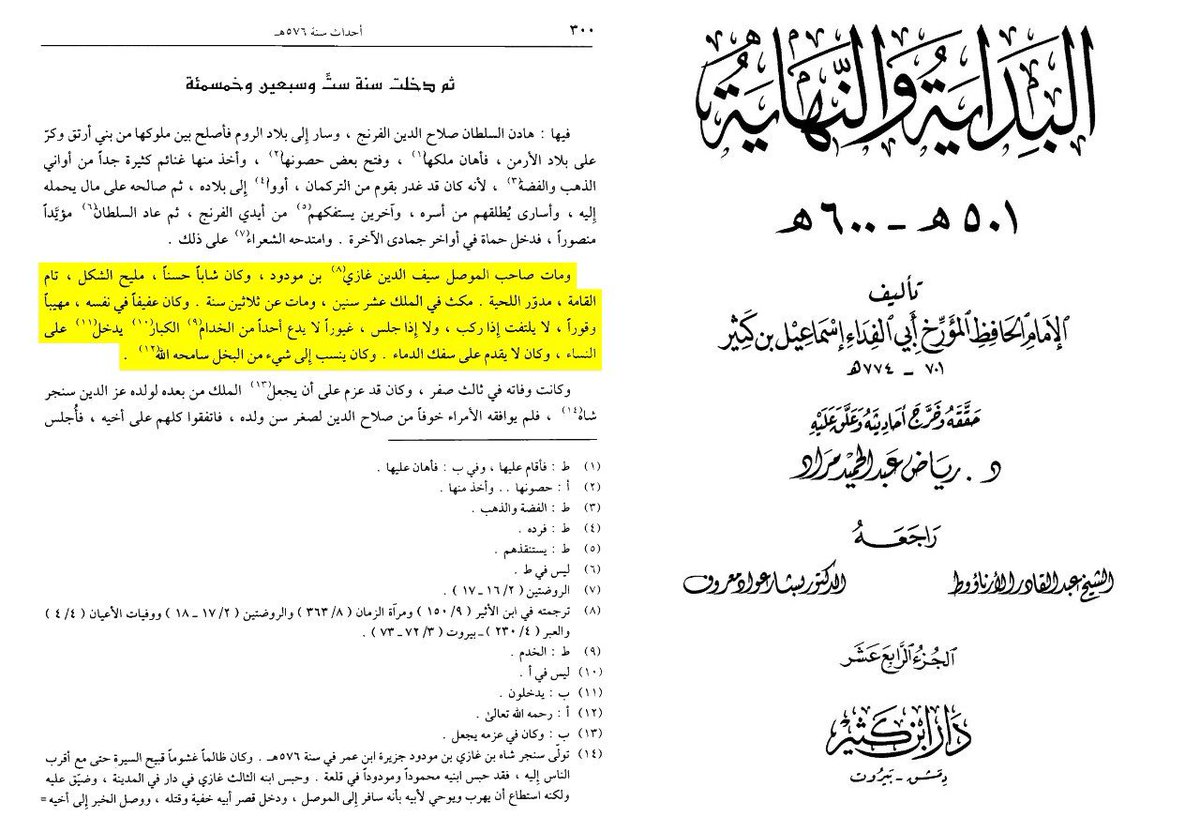 البداية والنهاية
٥٠١هـ - ٦٠٠هـ
تأليف
الإمام الحافظ المؤرخ أبي الفداء إسماعيل بن كثير
٧٠١ - ٧٧٤هـ
حققه وخرج أحاديثه وعلق عليه
د. رياض عبد الحميد مراد
راجعه
الشيخ عبد القادر الأرناؤوط
الدكتور بشار عواد معروف
الجزء الرابع عشر
دار ابن كثير
دمشق - بيروت
٣٠٠
أحداث سنة ٥٧٦هـ
ثم دخلت سنة ستٍّ وسبعين وخمسمئة
فيها : هادن السلطان صلاح الدين الفرنج ، وسار إلى بلاد الروم فأصلح بين ملوكها من بني أرتق وكرّ
على بلاد الأرمن ، فأهان ملكها(١) ، وفتح بعض حصونها(٢) ، وأخذ منها غنائم كثيرة جداً من أواني
الذهب والفضة(٣) ، لأنه كان قد غدر بقوم من التركمان ، أووا(٤) إلى بلاده ، ثم صالحه على مال يحمله
إليه ، وأسارى يُطلقهم من أسره ، وآخرين يستفكهم(٥) من أيدي الفرنج ، ثم عاد السلطان(٦) مؤيَّداً
منصوراً ، فدخل حماة في أواخر جمادى الآخرة . وامتدحه الشعراء(٧) على ذلك .
ومات صاحب الموصل سيف الدين غازي(٨) بن مودود ، وكان شاباً حسناً ، مليح الشكل ، تام
القامة ، مدوّر اللحية . مكث في الملك عشر سنين ، ومات عن ثلاثين سنة . وكان عفيفاً في نفسه ، مهيباً
وقوراً ، لا يلتفت إذا ركب ، ولا إذا جلس ، غيوراً لا يدع أحداً من الخدام(٩) الكبار(١٠) يدخل(١١) على
النساء ، وكان لا يقدم على سفك الدماء . وكان ينسب إلى شيء من البخل سامحه الله(١٢) .
وكانت وفاته في ثالث صفر ، وكان قد عزم على أن يجعل(١٣) الملك من بعده لولده عز الدين سنجر
شاه(١٤) ، فلم يوافقه الأمراء خوفاً من صلاح الدين لصغر سن ولده ، فاتفقوا كلهم على أخيه ، فأُجلس
(١) ط : فأقام عليها ، وفي ب : فأهان عليها .
(٢) أ : حصونها .. وأخذ منها .
(٣) ط : الفضة والذهب .
(٤) ط : فرده .
(٥) ط : يستنقذهم .
(٦) ليس في ط .
(٧) الروضتين ( ٢/ ١٦ - ١٧ ) .
(٨) ترجمته في ابن الأثير ( ٩/ ١٥٠ ) ومرآة الزمان ( ٨/ ٣٦٣ ) والروضتين ( ٢/ ١٧ - ١٨ ) ووفيات الأعيان ( ٤/ ٤ )
والعبر ( ٤/ ٢٣٠ ) - بيروت ( ٣/ ٧٢ - ٧٣ ) .
(٩) ط : الخدم .
(١٠) ليس في أ .
(١١) ب : يدخلون .
(١٢) أ : رحمه الله تعالى .
(١٣) ب : وكان في عزمه يجعل .
(١٤) تولّى سنجر شاه بن غازي بن مودود جزيرة ابن عمر في سنة ٥٧٦هـ . وكان ظالماً غشوماً قبيح السيرة حتى مع أقرب
الناس إليه ، فقد حبس ابنيه محموداً ومودوداً في قلعة . وحبس ابنه الثالث غازي في دار في المدينة ، وضيّق عليه
ولكنه استطاع أن يهرب ويوحي لأبيه بأنه سافر إلى الموصل ، ودخل قصر أبيه خفية وقتله ، ووصل الخبر إلى أخيه =